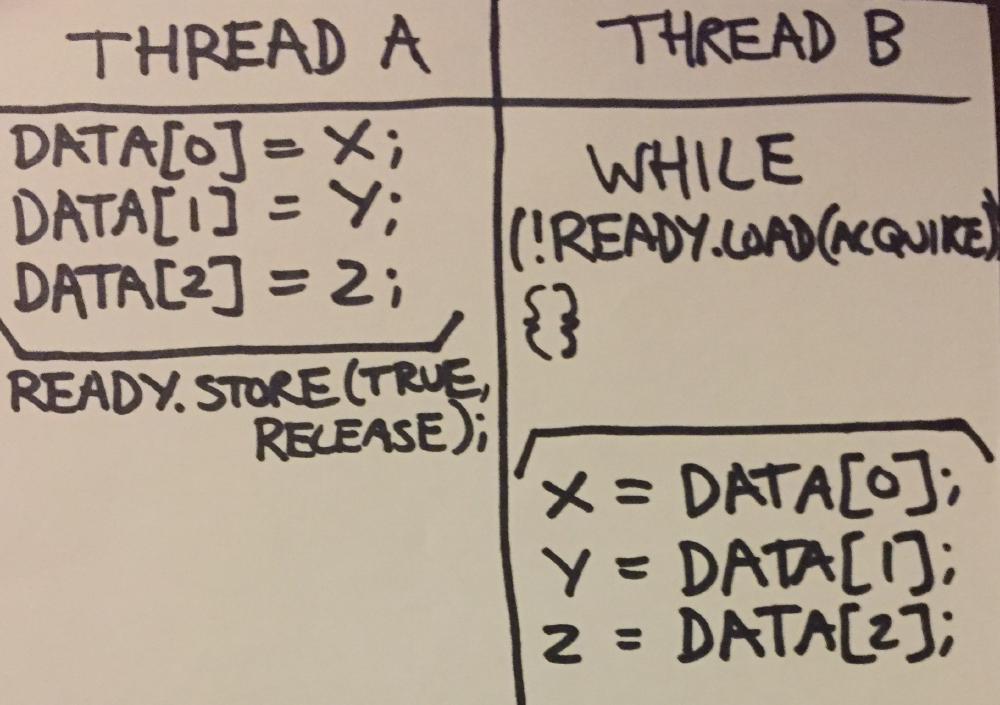 THREAD A
DATA[0] = X;
DATA[1] = Y;
DATA[2] = Z;
READY.STORE(TRUE,
RELEASE);
THREAD B
WHILE
(!READY.LOAD(ACQUIRE))
{}
X = DATA[0];
Y = DATA[1];
Z = DATA[2];